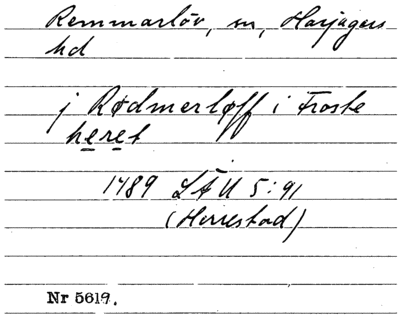 Remmarlöv, sn, Harjagers
hd
j Rødmerløff i Froste
heret
1489 LÅU 5:91
(Herrestad)
Nr 5619.